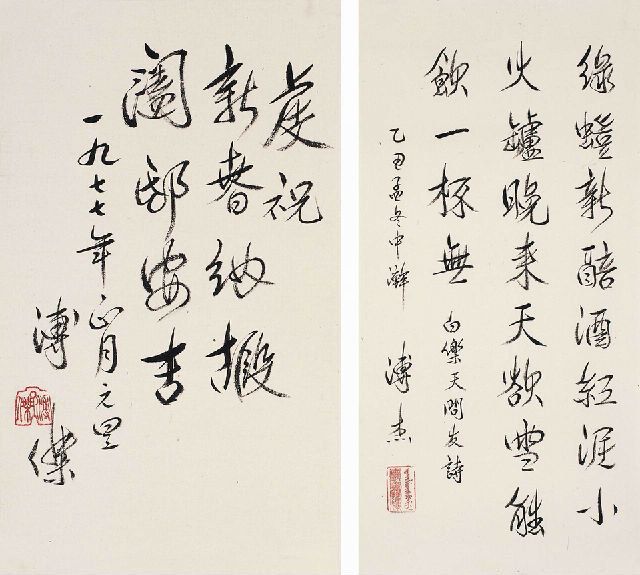 綠螘新醅酒紅泥小
火鑪晚来天欲雪能
飲一杯無
白樂天問友詩
乙丑孟冬中澣
溥杰
虔祝
新春納嘏
闔邸安吉
一九七七年正月元旦
溥傑